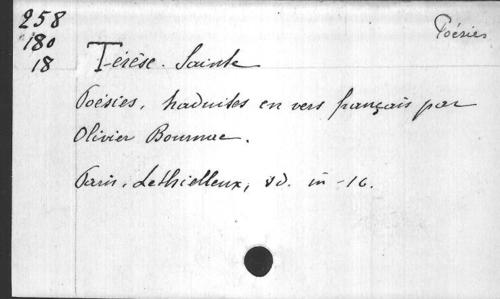 258
180
18
Poésies
Térèse. Sainte
Poésies, traduites en vers français par
Olivier Bournac.
Paris, Lethielleux, sd. in-16.